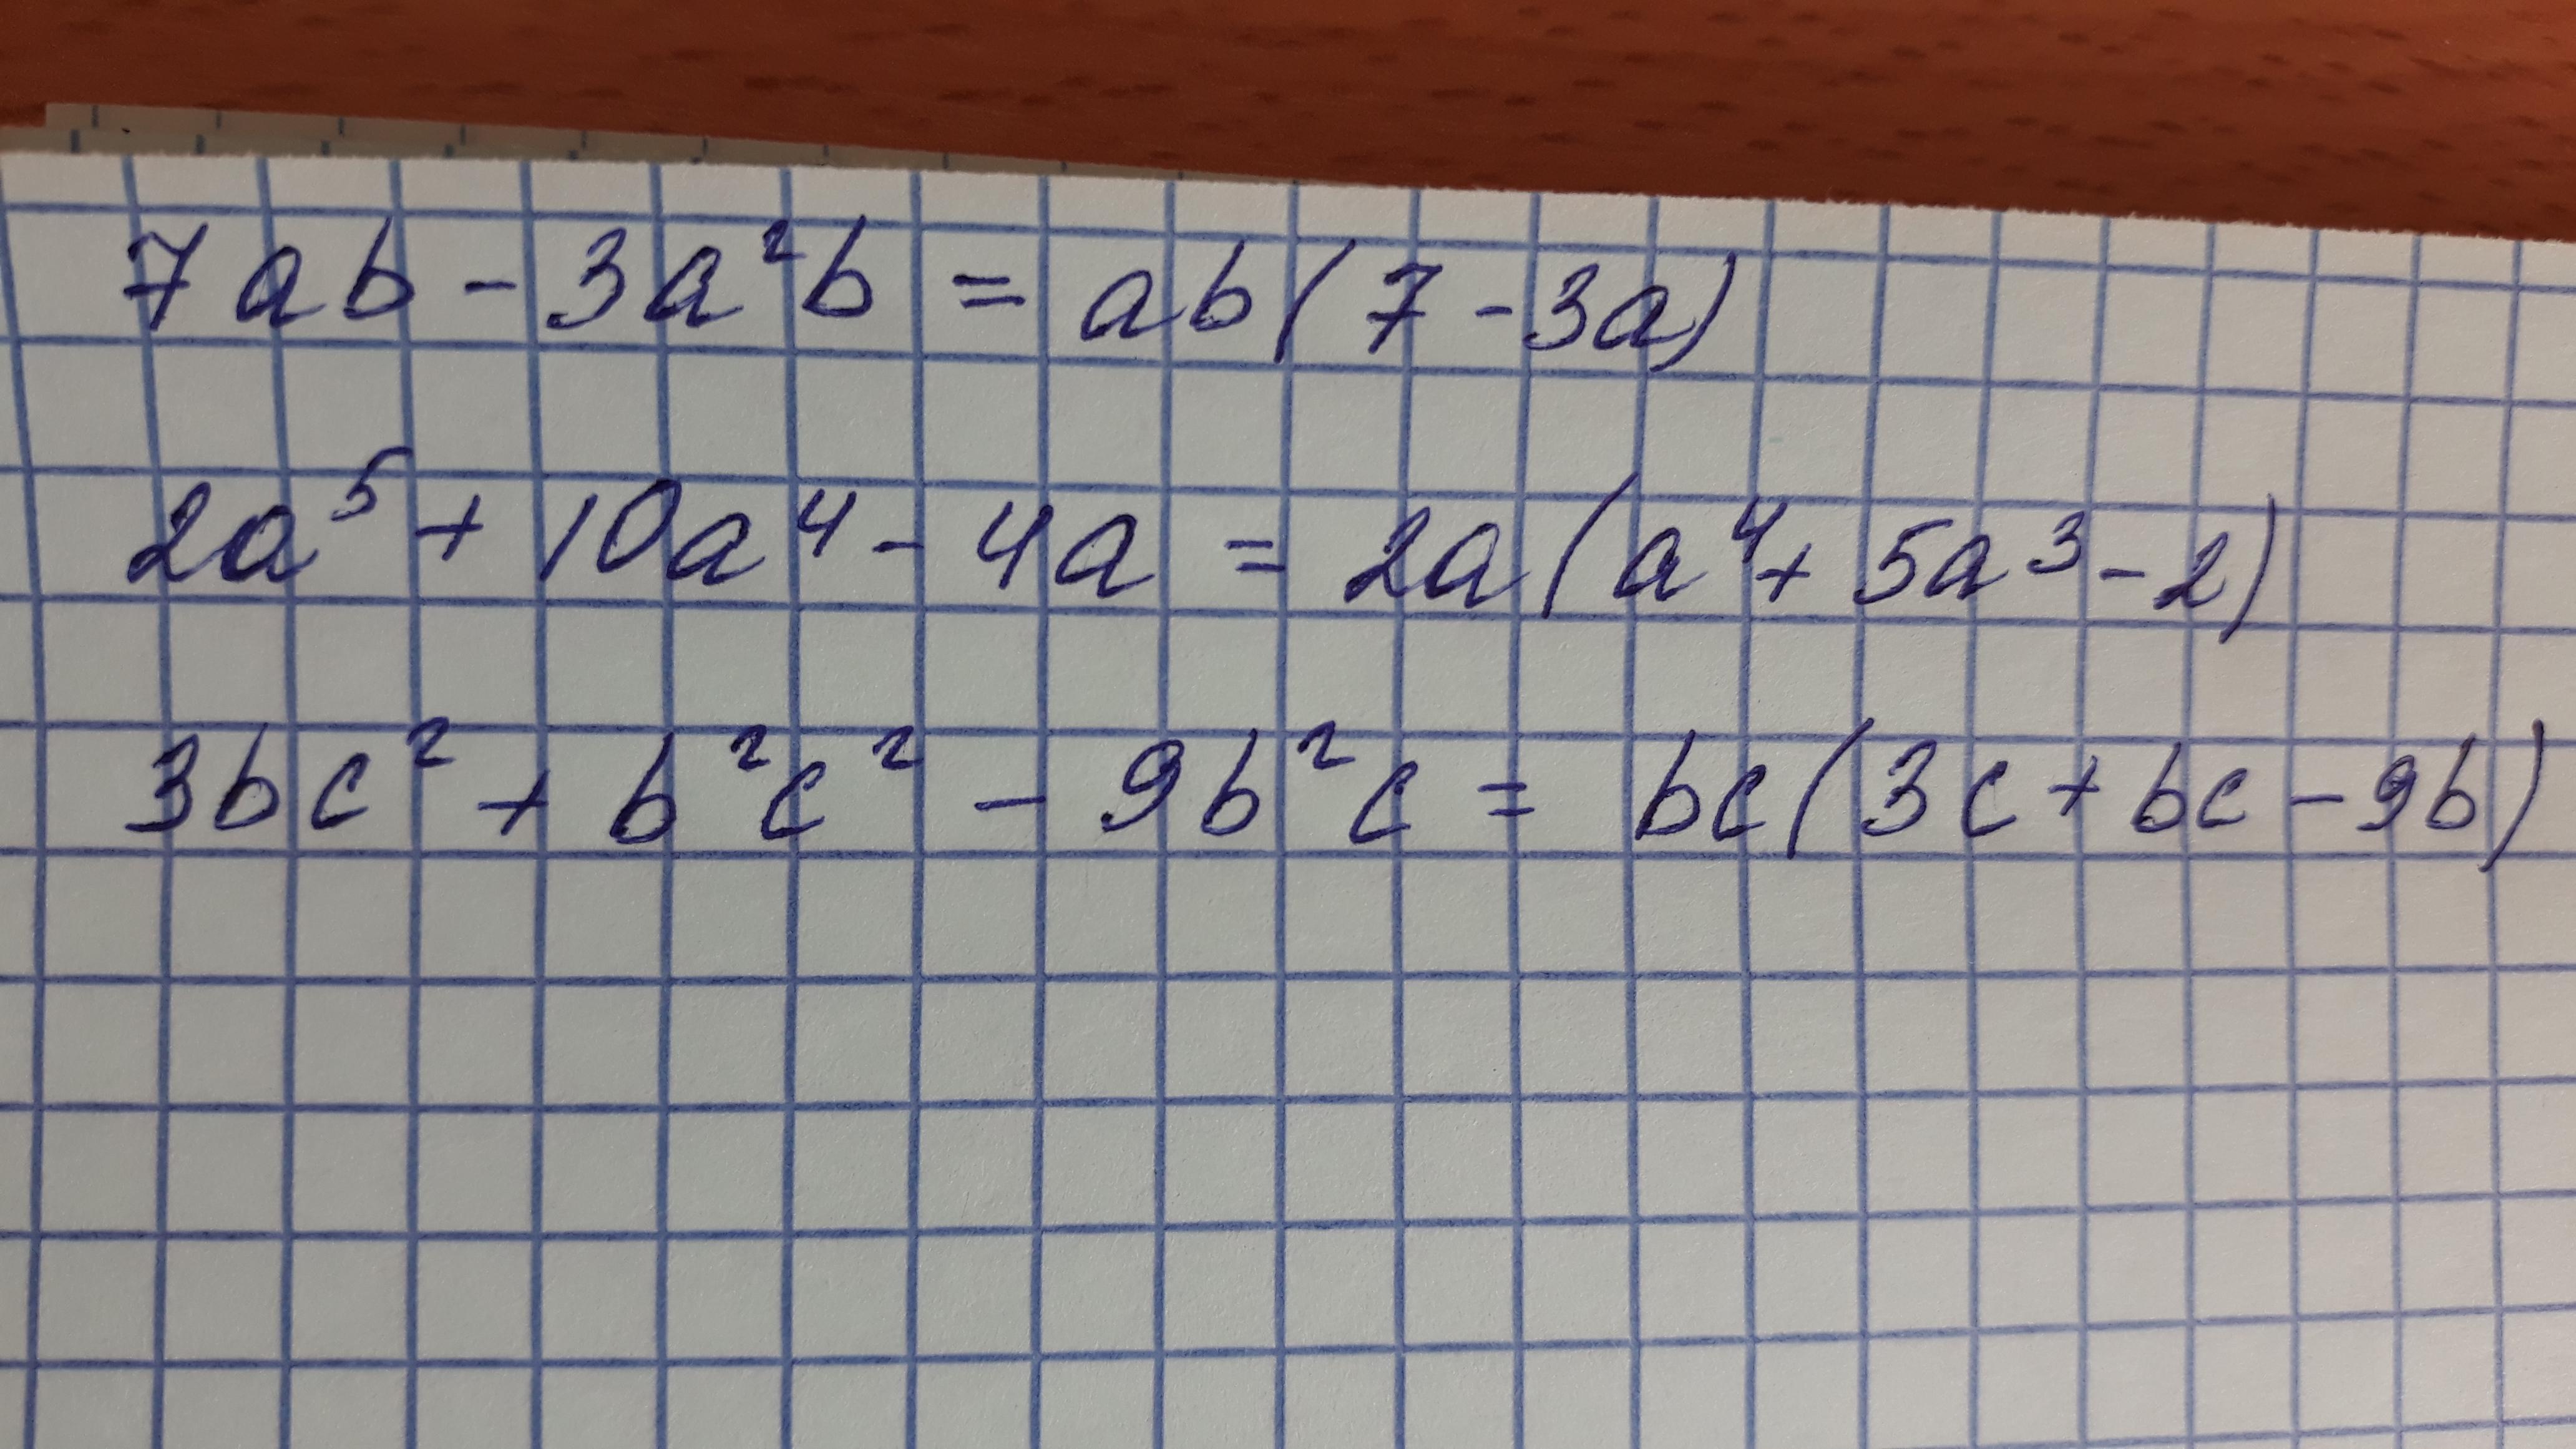 7ab - 3a²b = ab(7 - 3a)
2a⁵ + 10a⁴ - 4a = 2a(a⁴ + 5a³ - 2)
3bc² + b²c² - 9b²c = bc(3c + bc - 9b)